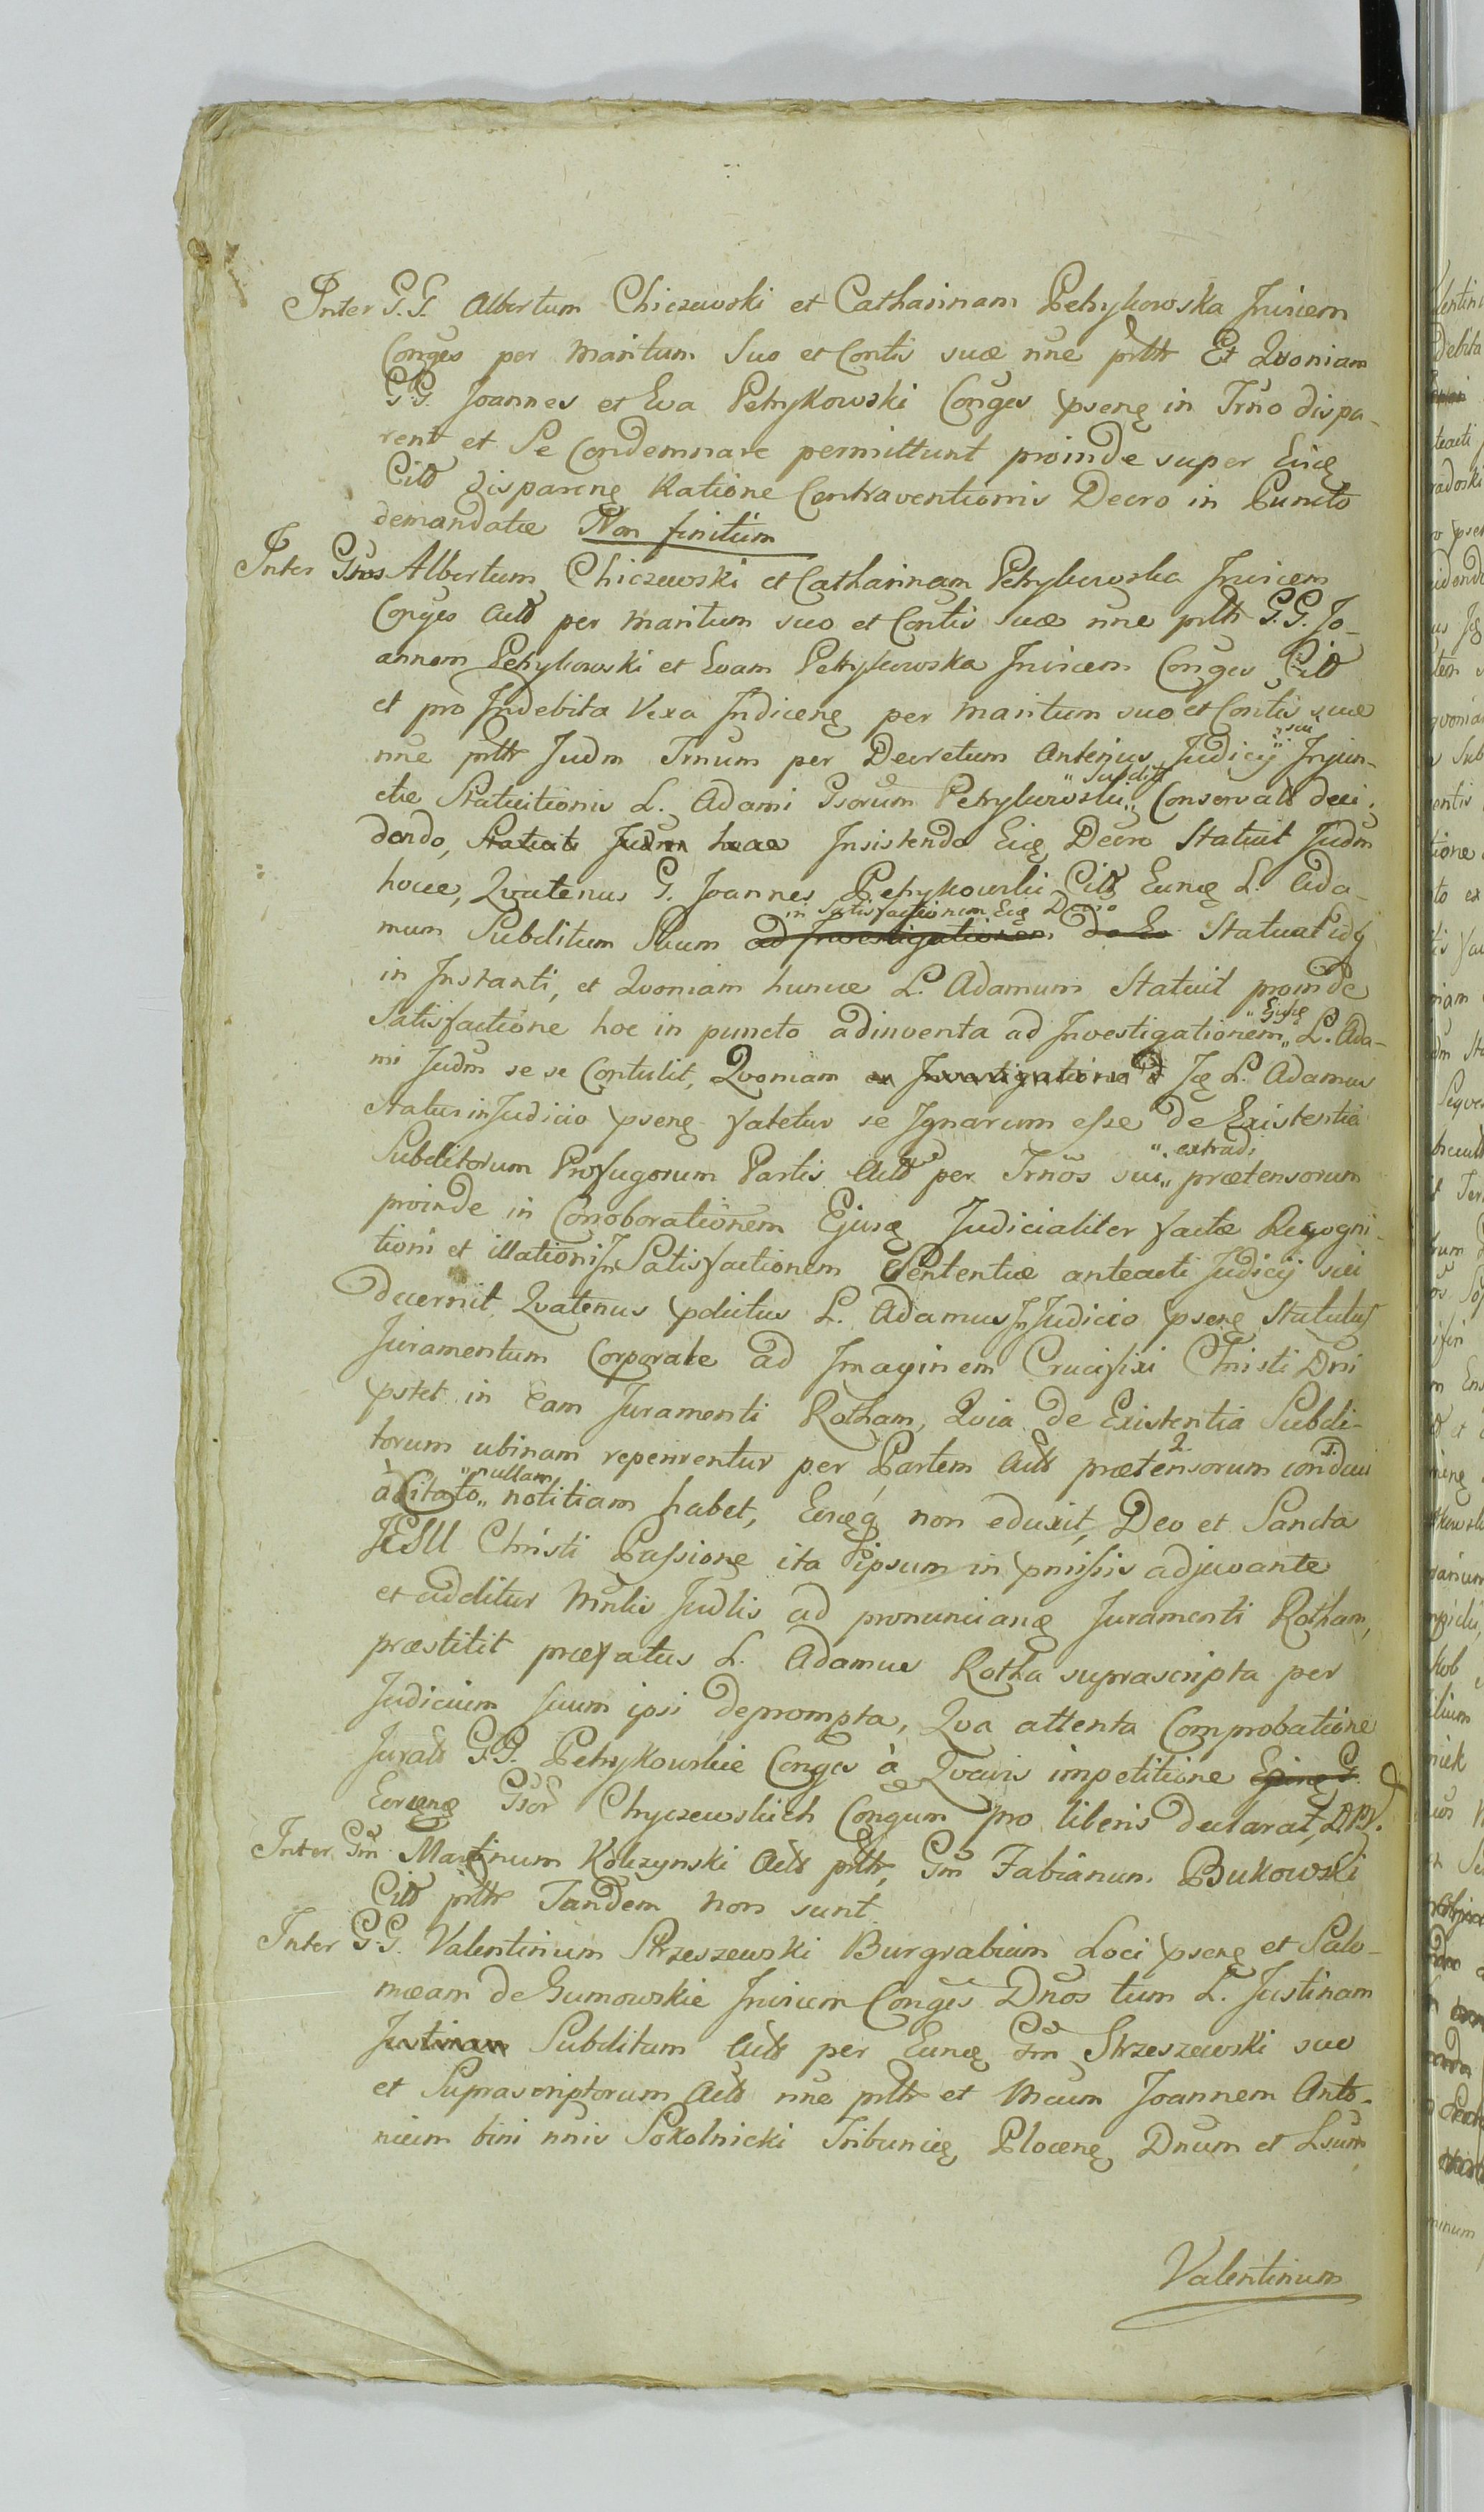 Inter G.G. Albertum Chiczewski et Catharinam Petrykowska Invicem
Conges per Maritum Suo et Contis suæ nne prltr Et Qvoniam
G.G. Joannes et Eva Petrykowski Conges pseng in Trno dispa-
rent et Se Condemnare permittunt proinde super Eisg
Citt disparcng Ratione Contraventionis Decro in Puncto
demandatæ Non finitum
Inter Gsnos Albertum Chiczewski et Catharinam Petrykowska Invicem
Conges Actt per Maritum suo et Contis Suæ nne prltr G.G. Jo-
annem Petrykowski et Evam Petrykowska Invicem Conges Citt
et pro Indebita Vexa Indiceng per Maritum suo et Contis suæ
nne prltr Judm Trnum per Decretum Anterius Judicij „sui Injun-
ctæ Statuitionis L. Adami Gsorum Petrykowski „Subditi Conservatt deci-
dendo, Statuit Judm hocce Insistendo Eicg Decro Statuit Judm
hocce, Qvatenus G. Joannes Petrykowski Citt Euncg L. Ada-
in Satisfactionem Eicg Decro
mum Subditum Suum ad Investigationem de Eo Statuat Idq
in Instanti, et Qvoniam huncce L. Adamum Statuit proinde
Satisfactione hoc in puncto adinventa ad Investigationem „Ejusg L. Ada-
mi Judm se se Contulit, Qvoniam ex Investigatione Ig L. Adamus
status in Judicio pseng fatetur se Ignarum esse de Existentia
Subditorum Profugorum Partis Actt per Trnos sui „extradi prætensorum
proinde in Corroborationem Ejusg Judicialiter factæ Recogni-
tioni et illationi In Satisfactionem Sententiæ anteacti Judicij sui
decernit Qvatenus pdictus L. Adamus In Judicio pseng Statutus
Juramentum Corporale ad Imaginem Crucifixi Christi Dni
pstet in Eam Juramenti Rotham, Qvia de Existentia Subdi-
torum ubinam reperirentur per Partem Actt prætensorum 2 conduci 1
à Citato „nullam notitiam habet, Eoscgq non eduxit, Deo et Sancta
JESU Christi Passione ita ipsum in pmissis adjuvante
et additur Mnlis Judlis ad pronunciang Juramenti Rotham,
præstitit præfatus L. Adamus Rotha suprascripta per
Judicium Suum ipsi deprompta, Qva attenta Comprobatione
Juratt G.G. Petrykowskie Conges à Qvavis impetitione Eorung G.
Eorceng Gsor Chyczewskich Congum pro liberis declarat, DPM.
Inter Gm Martinum Kolczynski Actt prltr, Gm Fabianum Bukowski
Citt prltr Tandem non sunt
Inter G.G. Valentinum Strzeszewski Burgrabium Loci pseng et Salo-
mæam de Gumowskie Invicem Conges Dnos tum L. Justinam
Justinam Subditam Actt per Euncg Gm Strzeszewski suo
et Suprascriptorum Actt nne prltr et Mcum Joannem Anto-
nium bini nnis Sokolnicki Tribuncg Ploceng Dnum et Lsum
Valentinum